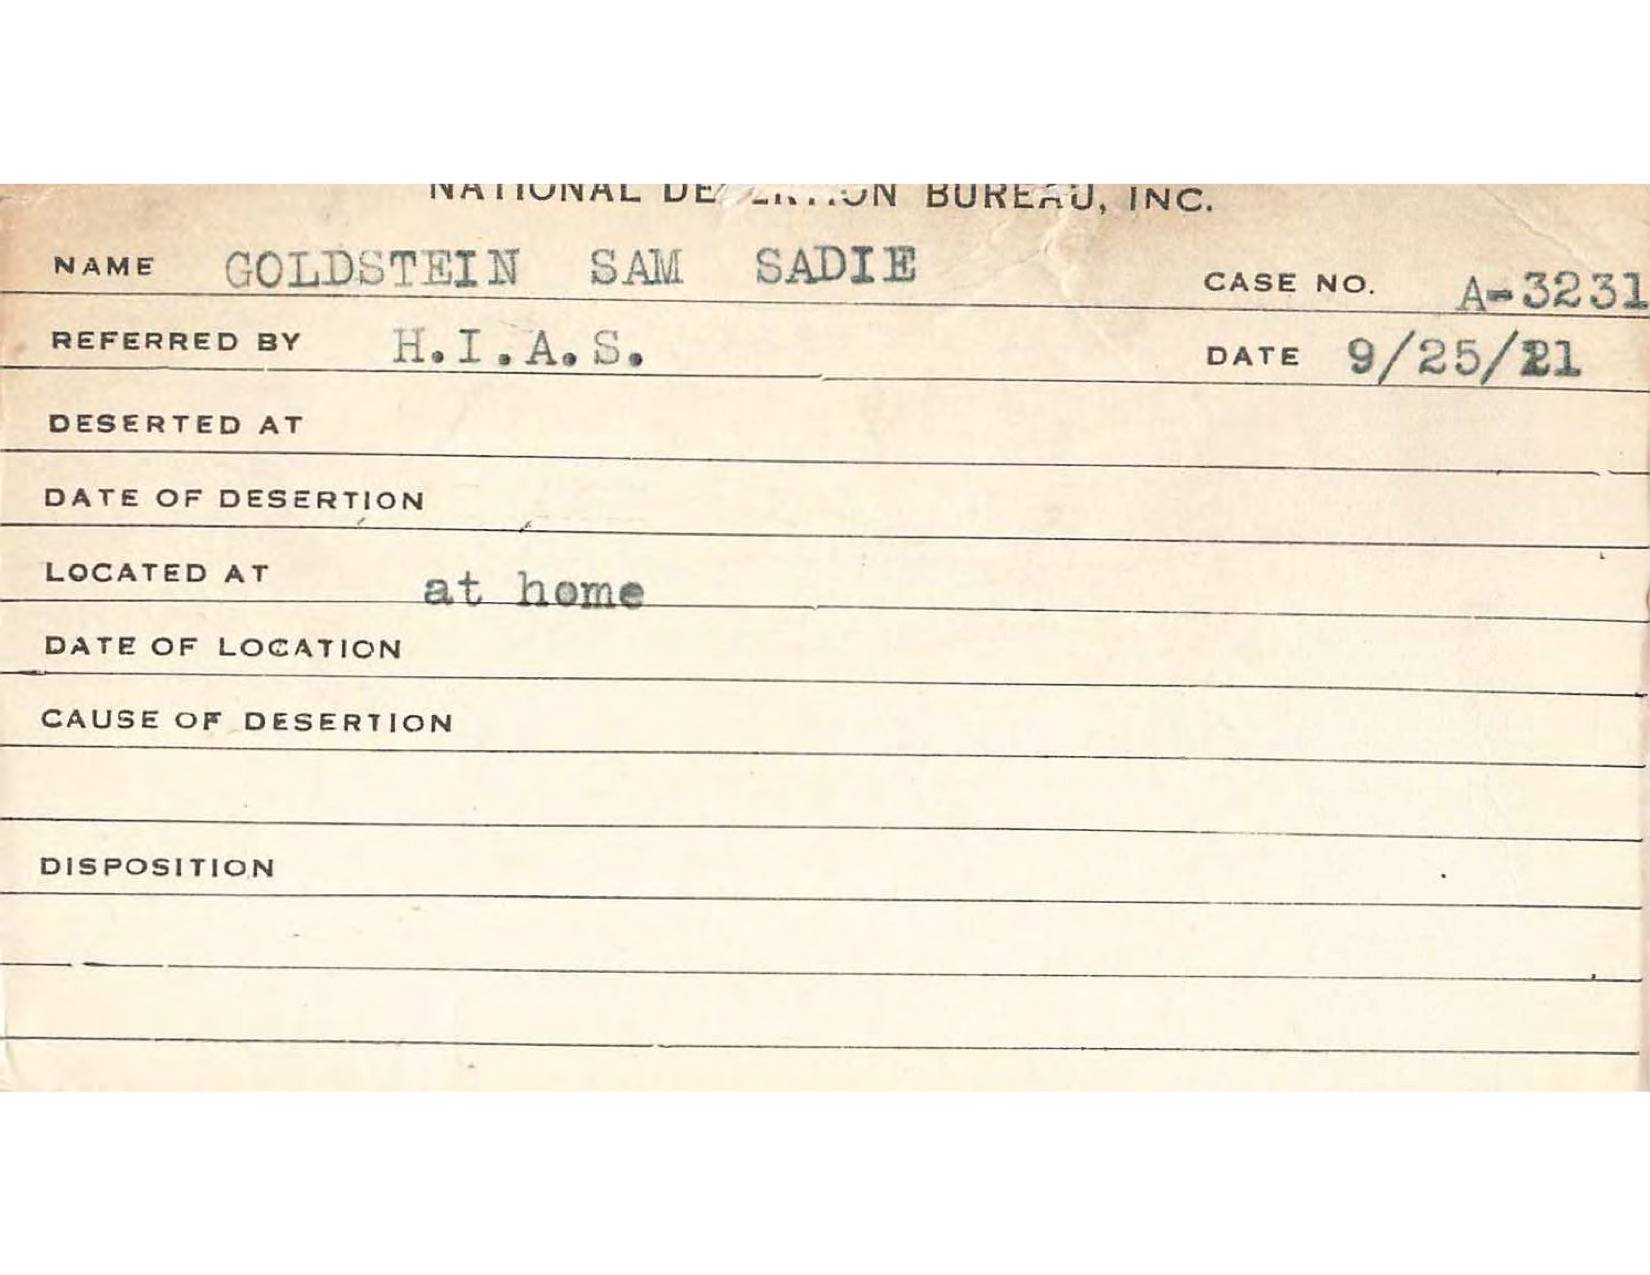 NATIONAL DESERTION BUREAU, INC.
NAME GOLDSTEIN SAM SADIE CASE NO. A-3231
REFERRED BY H.I.A.S. DATE 9/25/21
DESERTED AT
DATE OF DESERTION
LOCATED AT at home
DATE OF LOCATION
CAUSE OF DESERTION
DISPOSITION